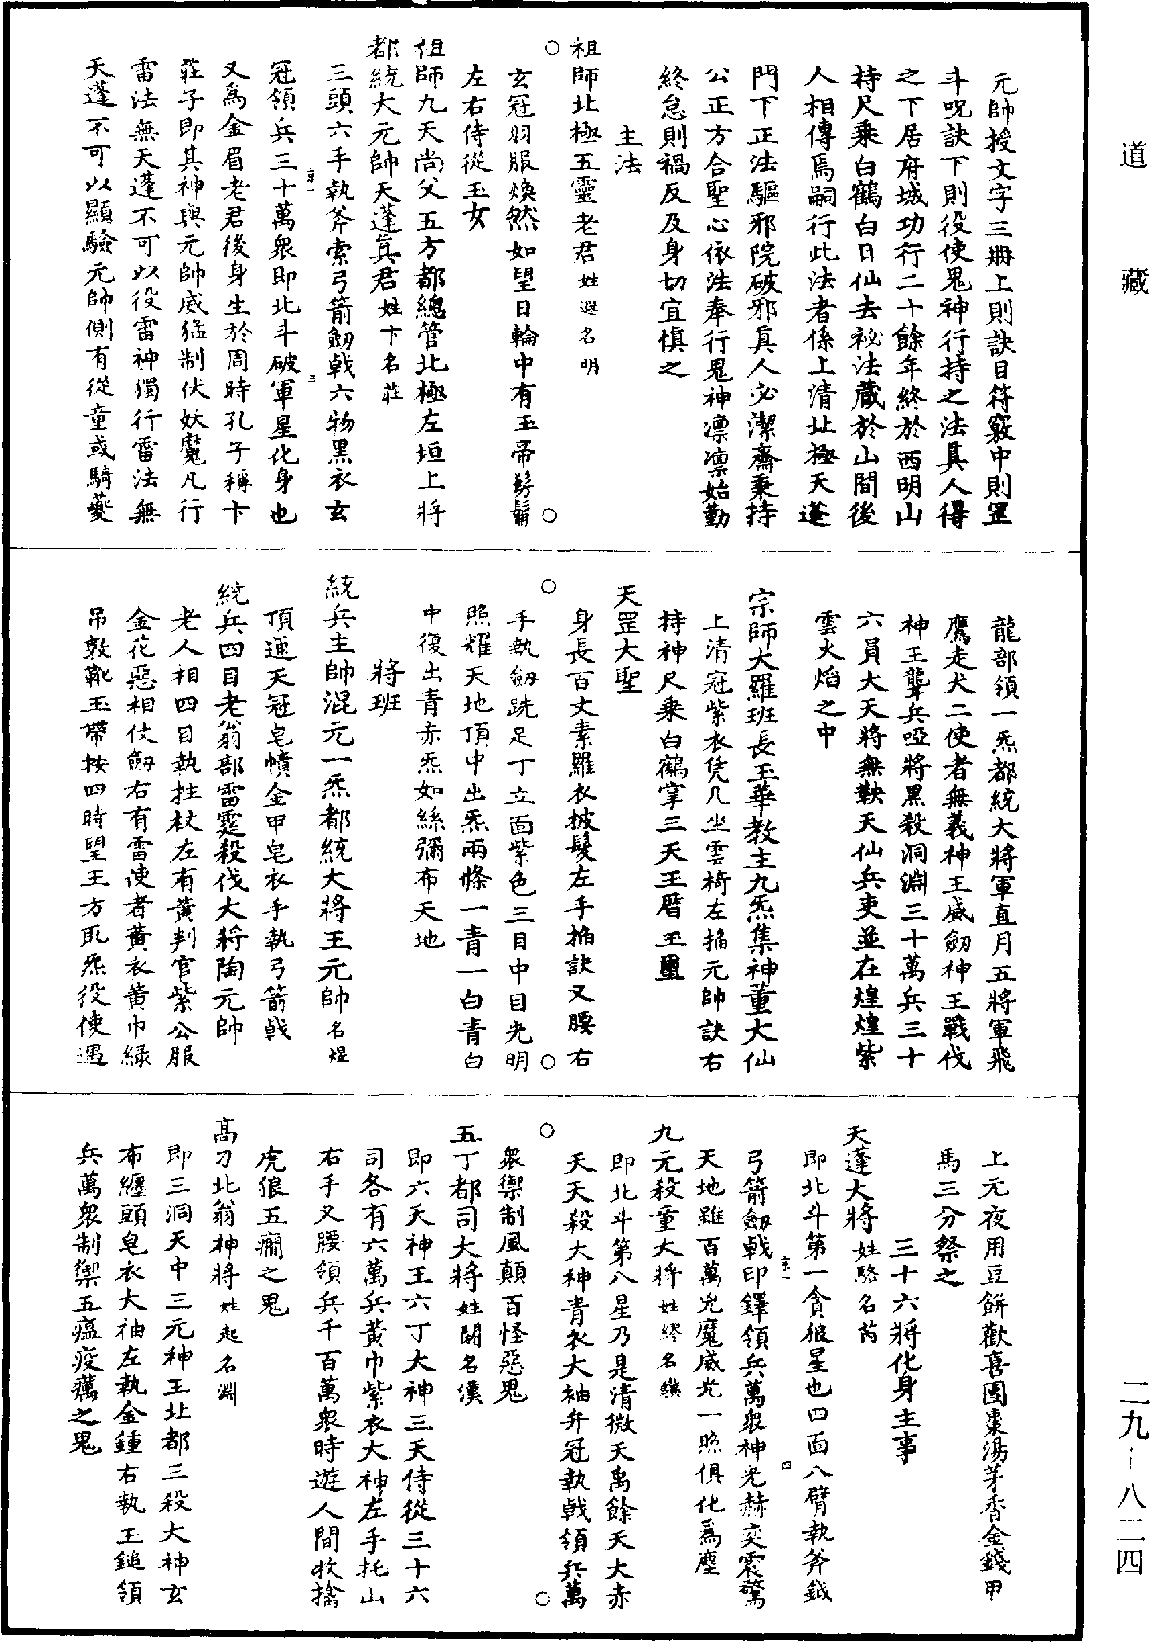 道藏
二九-八二四
元帥授文字三冊上則訣目符竅中則罡
斗呪訣下則役使鬼神行持之法真人得
之下居府城功行二十餘年終於西明山
持尺乘白鶴白日仙去祕法藏於山間後
人相傳焉嗣行此法者係上清北極天蓬
門下正法驅邪院破邪真人必潔齋秉持
公正方合聖心依法奉行鬼神凛凛始勤
終怠則禍反及身切宜慎之
主法
祖師北極五靈老君姓選名明
玄冠羽服煥然如望日輪中有玉帝髣髴
左右侍從玉女
祖師九天尚父五方都總管北極左垣上將
都統大元帥天蓬真君姓卞名莊
三頭六手執斧索弓箭劒戟六物黑衣玄
冠領兵三十萬衆即北斗破軍星化身也
又為金眉老君後身生於周時孔子稱卞
莊子即其神與元帥威猛制伏妖魔凡行
雷法無天蓬不可以役雷神獨行雷法無
天蓬不可以顯驗元帥側有從童或騎夔
龍部領一炁都統大將軍直月五將軍飛
鷹走犬二使者無義神王威劒神王戰伐
神王聾兵啞將黑殺洞淵三十萬兵三十
六員大天將無鞅天仙兵吏並在煌煌紫
雲火焰之中
宗師大羅班長玉華教主九炁集神董大仙
上清冠紫衣凭几坐雲椅左掐元帥訣右
持神尺乘白鶴掌三天王曆玉璽
天罡大聖
身長百丈素羅衣披髮左手掐訣叉腰右
手執劒跣足丁立面紫色三目中目光明
照耀天地頂中出炁兩條一青一白青白
中復出青赤炁如絲彌布天地
將班
統兵主帥混元一炁都統大將王元帥名煜
頂運天冠皂幘金甲皂衣手執弓箭戟
統兵四目老翁部雷霆殺伐大將陶元帥
老人相四目執拄杖左有黃判官紫公服
金花惡相仗劒右有雷使者黃衣黃巾綠
吊敦靴玉帶按四時望王方取炁役使遇
上元夜用豆餅歡喜團棗湯茅香金錢甲
馬三分祭之
三十六將化身主事
天蓬大將姓駱名芮
即北斗第一貪狼星也四面八臂執斧鉞
弓箭劒戟印鐸領兵萬衆神光赫奕震驚
天地雖百萬兇魔威光一照俱化為塵
九元殺童大將姓繆名
即北斗第八星乃是清微天禹餘天大赤
天天殺大神青衣大袖弁冠執戟領兵萬
衆禦制風顛百怪惡鬼
五丁都司大將姓閼名漢
即六天神王六丁大神三天侍從三十六
司各有六萬兵黃巾紫衣大神左手托山
右手叉腰領兵千百萬衆時遊人間收擒
虎狼五瘟之鬼
高刀北翁神將姓起名淵
即三洞天中三元神王北都三殺大神玄
布纏頭皂衣大袖左執金鍾右執玉鎚領
兵萬衆制禦五瘟疫癘之鬼